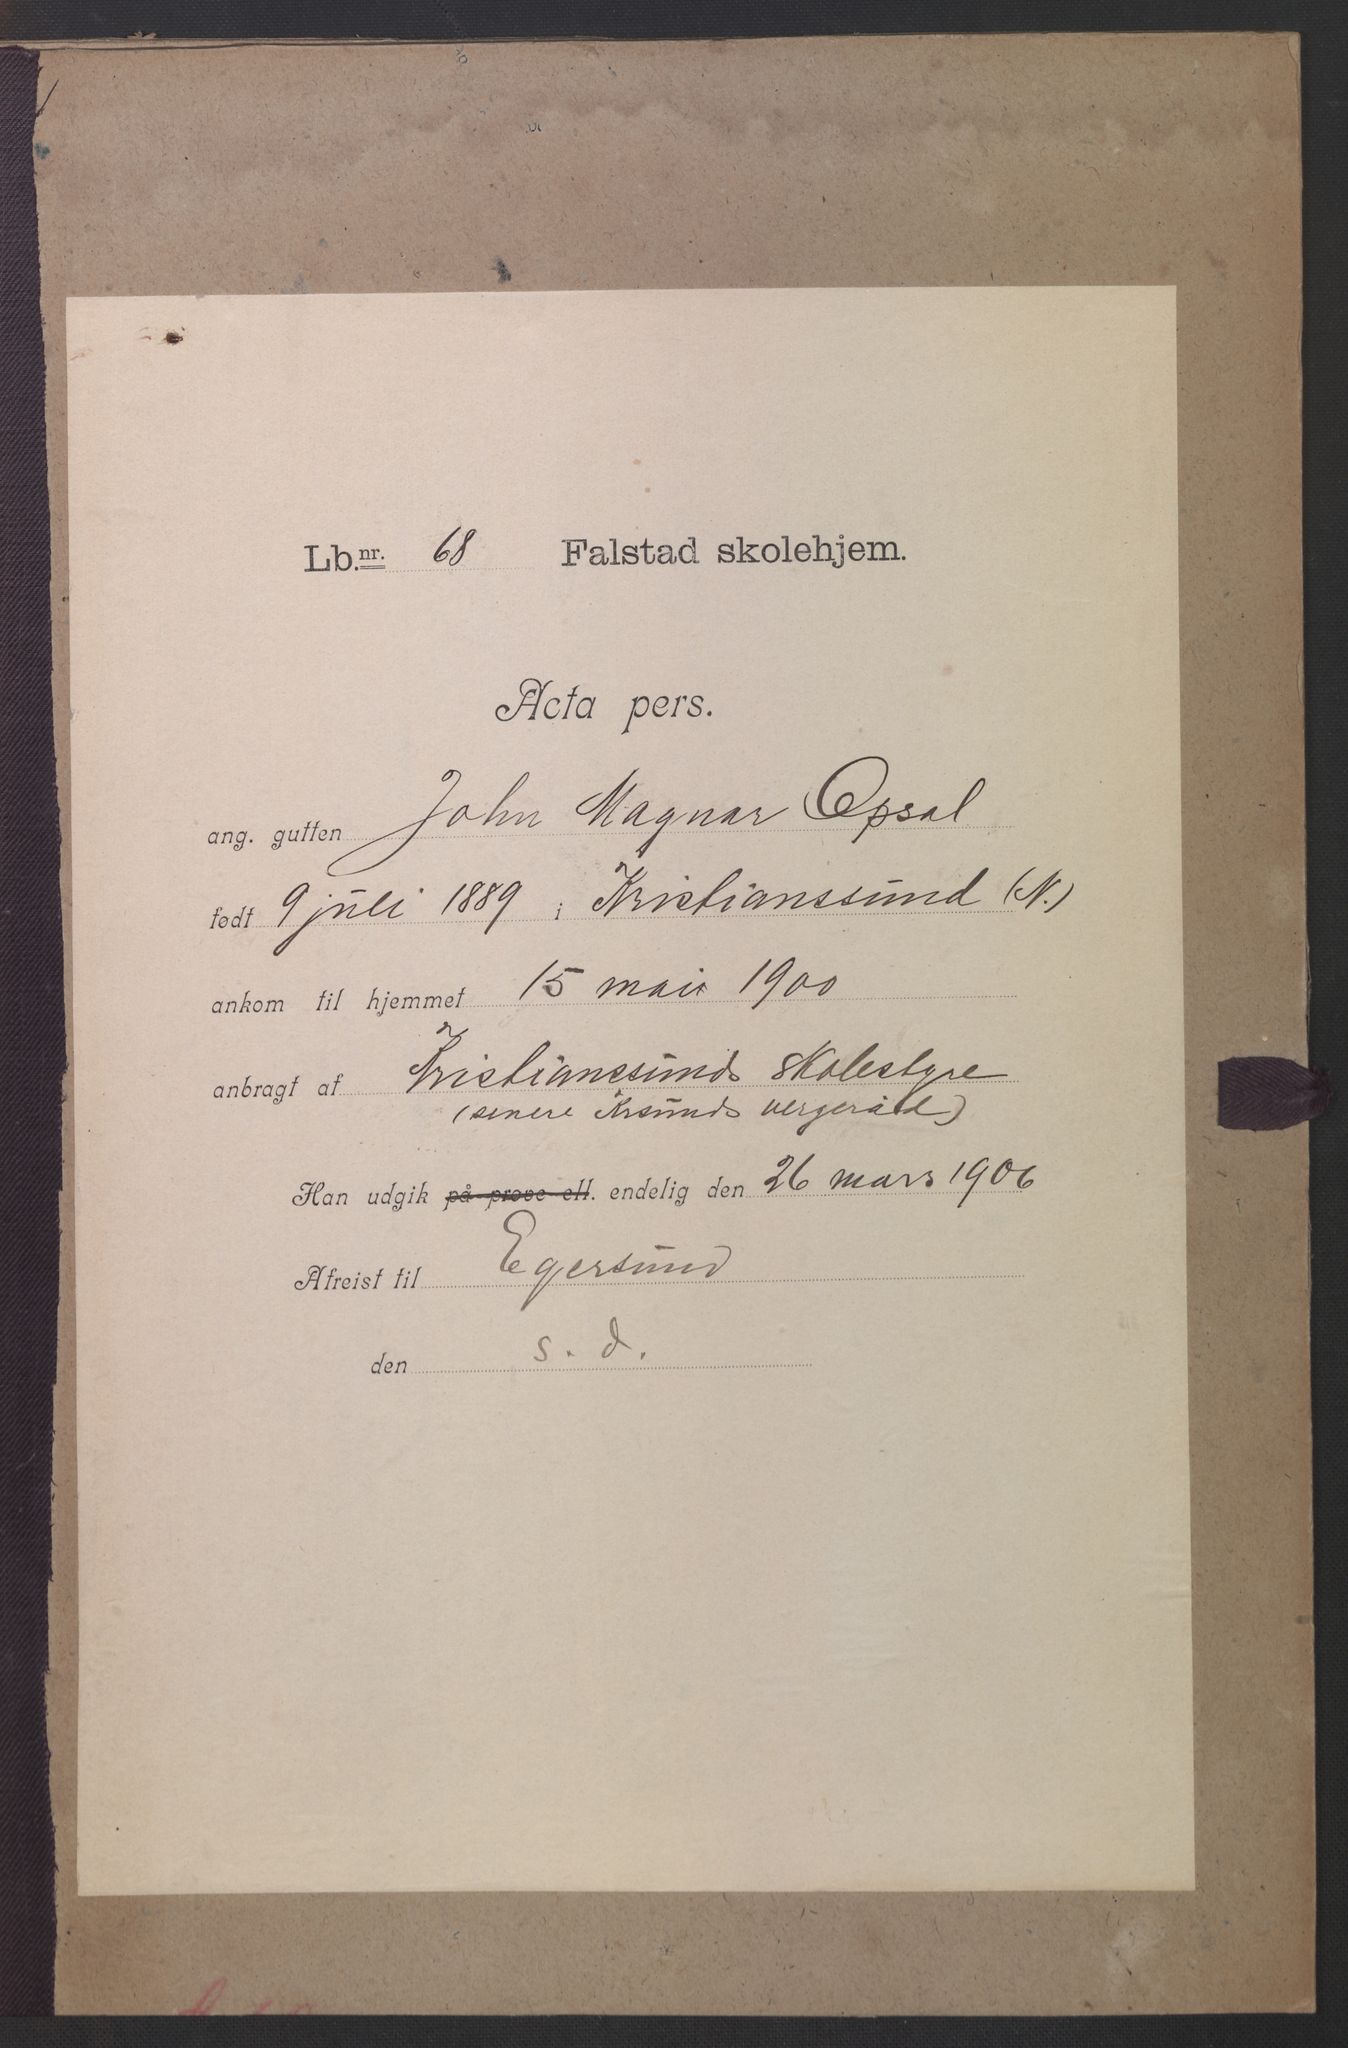 Lb.nr. 68 Falstad skolehjem.
Acta pers.
ang. gutten John Magnar Opsal
født 9 juli 1889 i Kristianssund (N.)
ankom til hjemmet 15 mai 1900
anbragt af Kristianssunds skolestyre
(senere Krsunds vergeråd)
Han udgik på prøve ell. endelig den 26 mars 1906
Afreist til Egersund
den s. d.